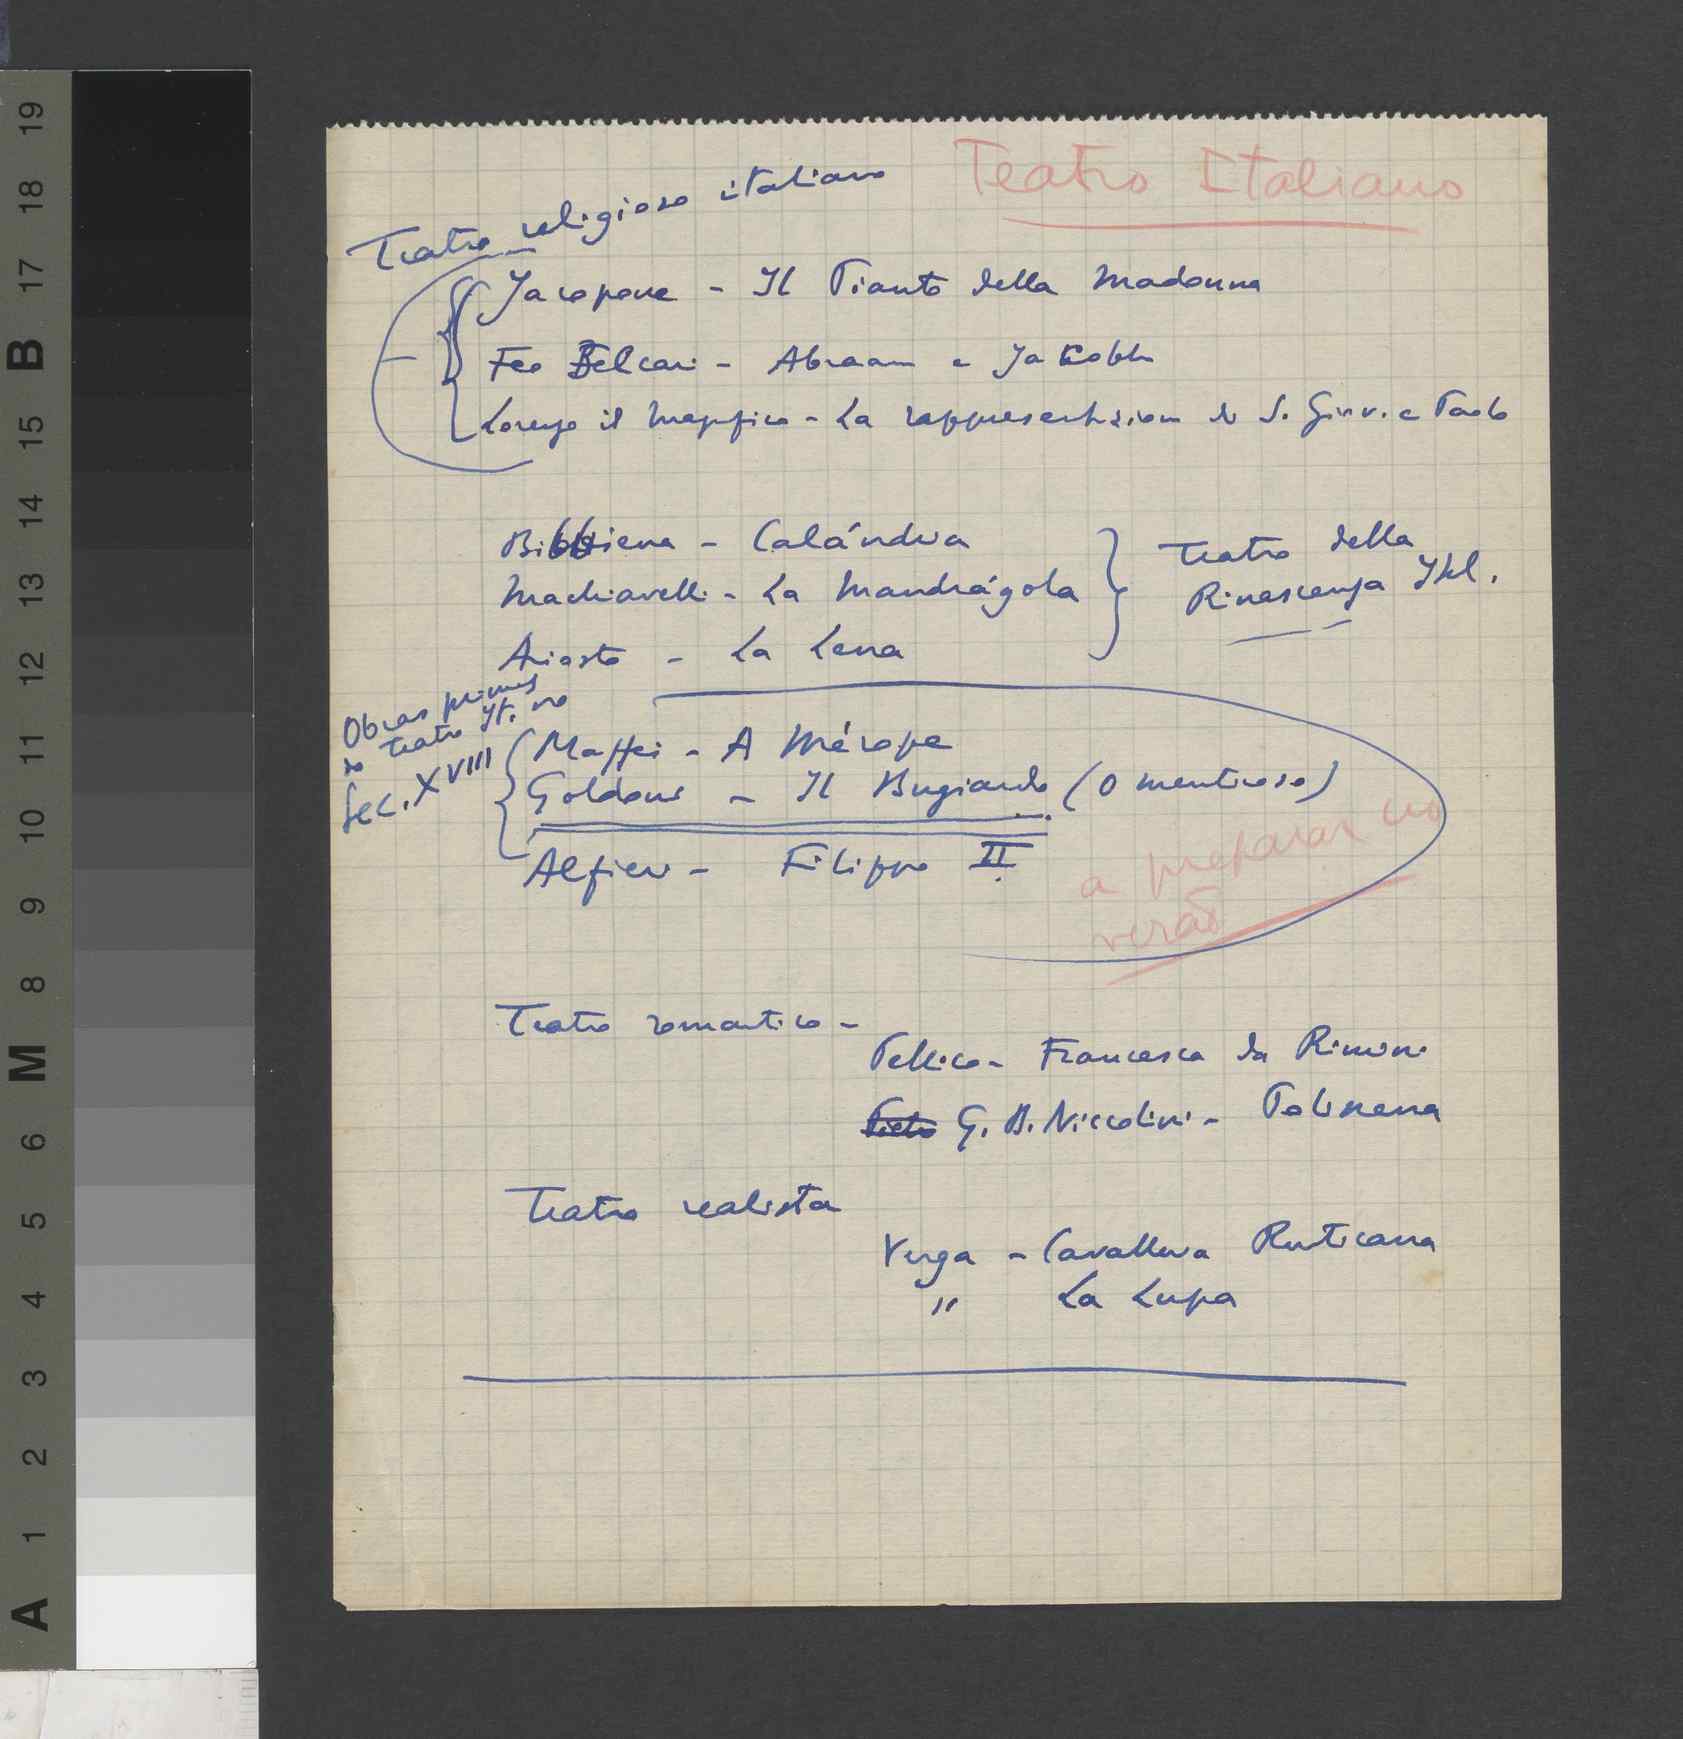 Teatro Italiano
Teatro religioso italiano
Jacopone - Il Pianto della Madonna
Feo Belcari - Abraam e Jacobb
Lorenzo il Magnifico - La rappresentazione di S. Giov. e Paolo
Bibbiena - Calándria
Machiavelli - La Mandrágola
Ariosto - La Lena
Teatro della
Rinascenza Ital.
Obras primas
do teatro It. no
Sec. XVIII
Maffei - A Mérope
Goldoni - Il Bugiardo (O mentiroso)
Alfieri - Filippo II
a preparar no
verão
Teatro romantico -
Pellico - Francesca da Rimini
G. B. Niccolini - Polinena
Teatro realista
Verga - Cavalleria Rusticana
" La Lupa
19
18
17
B
15
14
13
12
11
10
9
8
M
6
5
4
3
2
1
A